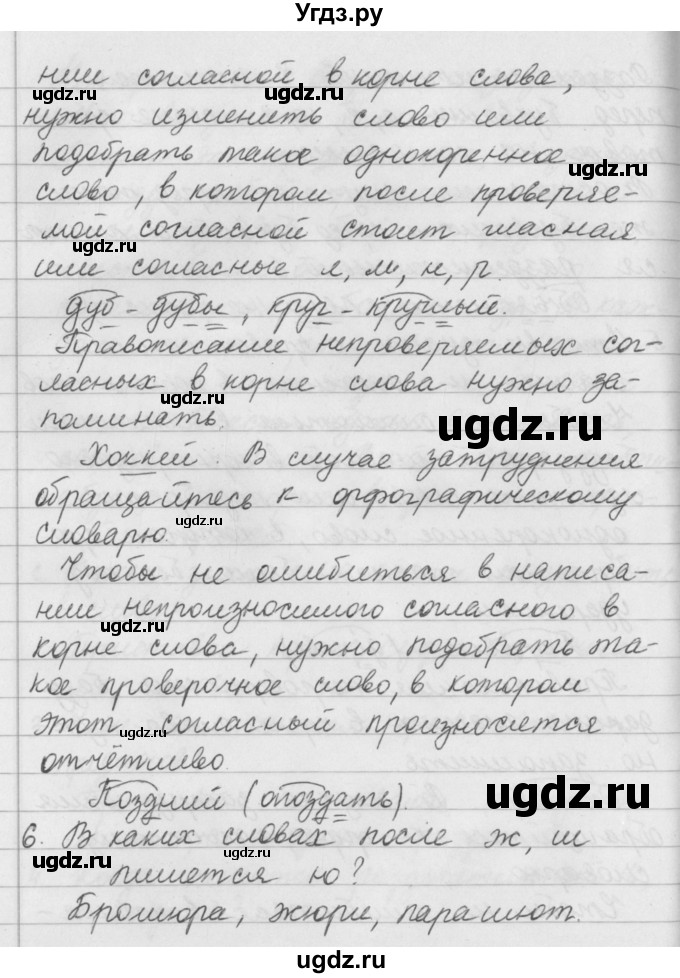 Угдз.ру
нии согласной в корне слова,
ugdz.ru
ugdz.ru
нужно изменить слово или
подобрать такое однокоренное
слово, в котором после проверяе-
мой согласной стоит гласная
ugdz.ru
или согласные л, м, н, р.
дуб - дубы, круг - круглый.
Правописание непроверяемых сог-
ugdz.ru
ласных в корне слова нужно за-
поминать.
ugdz.ru
Хоккей. В случае затруднения
обращайтесь к орфографическому
ugdz.ru
словарю.
Чтобы не ошибиться в написа-
нии непроизносимого согласного в
ugdz.ru
корне слова, нужно подобрать та-
кое проверочное слово, в котором
ugdz.ru
этот согласный произносится
отчётливо.
ugdz.ru
Поздний (опоздать).
6. В каких словах после ж, ш
ugdz.ru
пишется ю?
Брошюра, жюри, парашют.
ugdz.ru
ugdz.ru